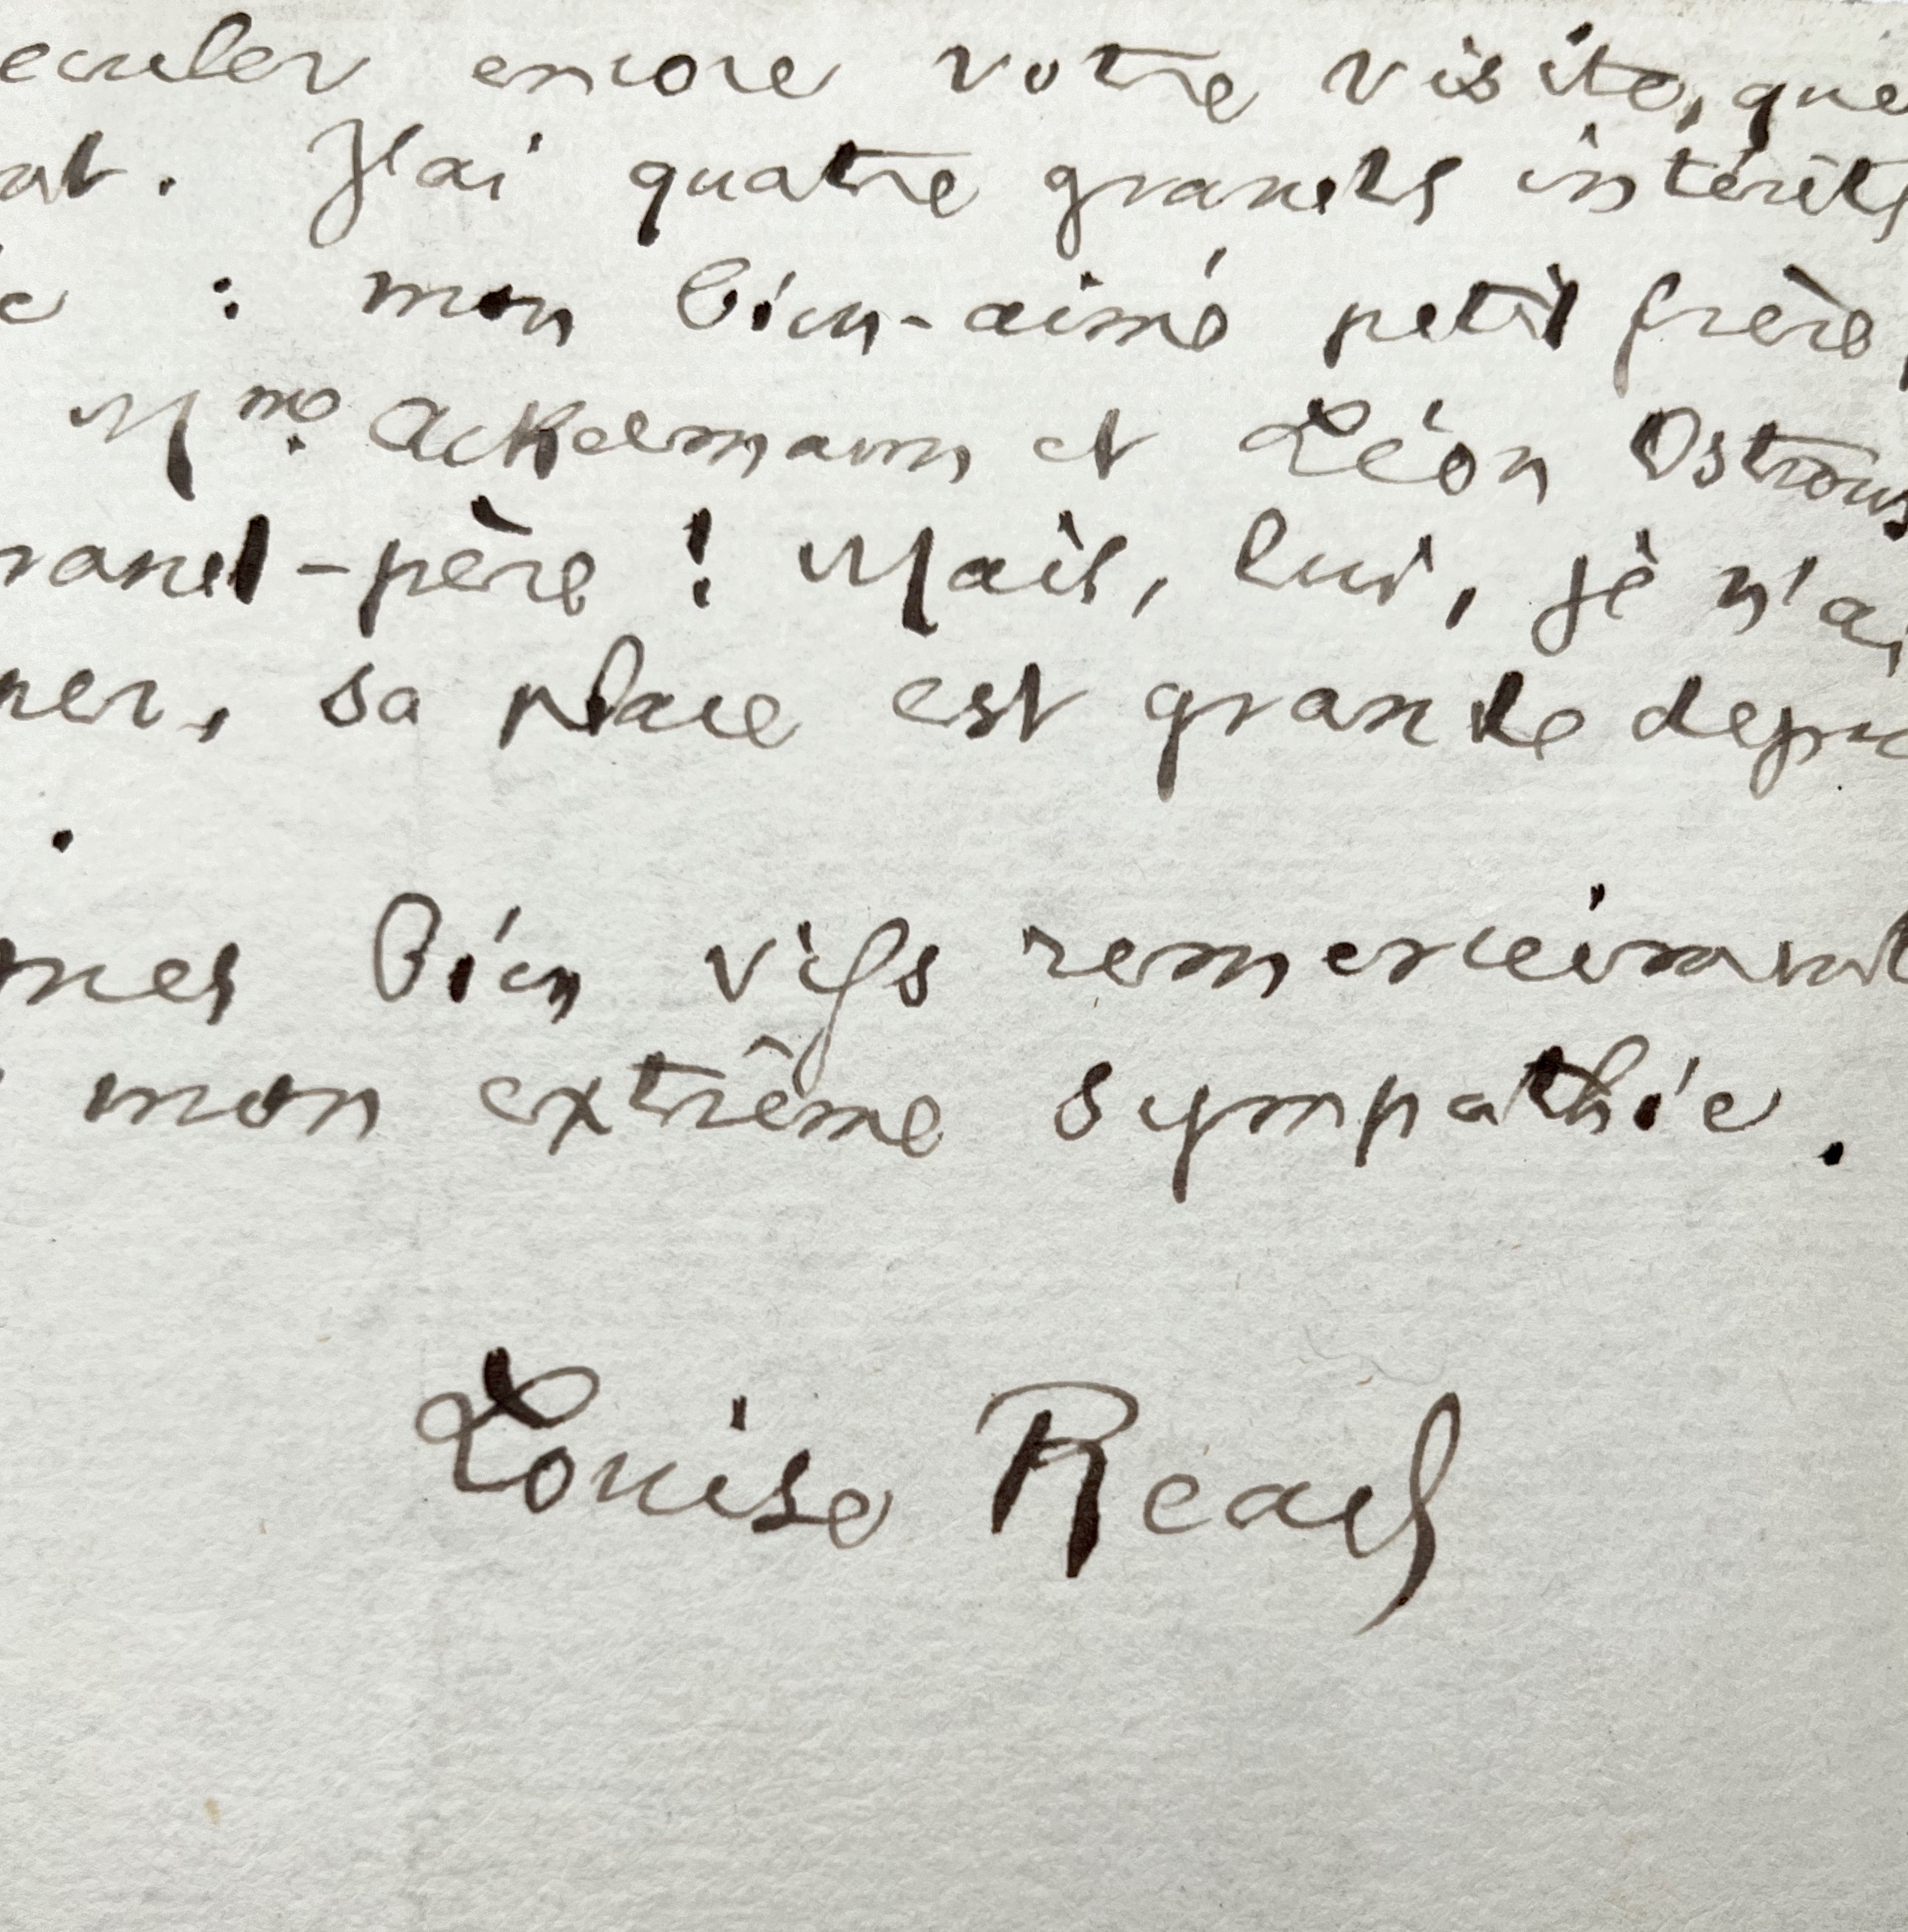 eculer encore votre visite, que
at. J'ai quatre grands intérêts
e : mon bien-aimé petit frère,
Mme Ackermann et Léon Ostrows
rand-père ! Mais, lui, je n'ai
ner, sa place est grande depu
.
mes bien vifs remerciements
mon extrême sympathie.
Louise Read